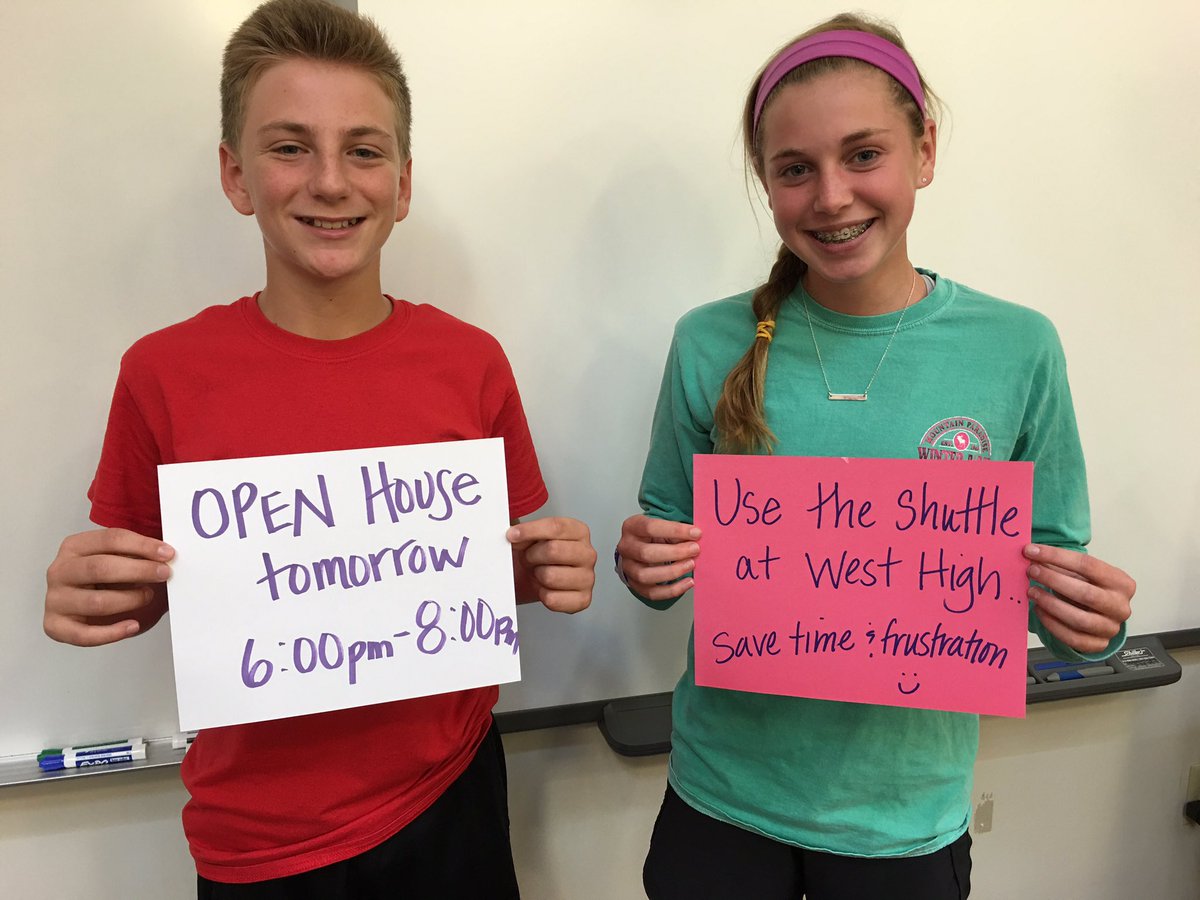 OPEN House
tomorrow
6:00pm-8:00pm
Use the Shuttle
at West High..
save time & frustration
MOUNTAIN PARADISE
EXPO